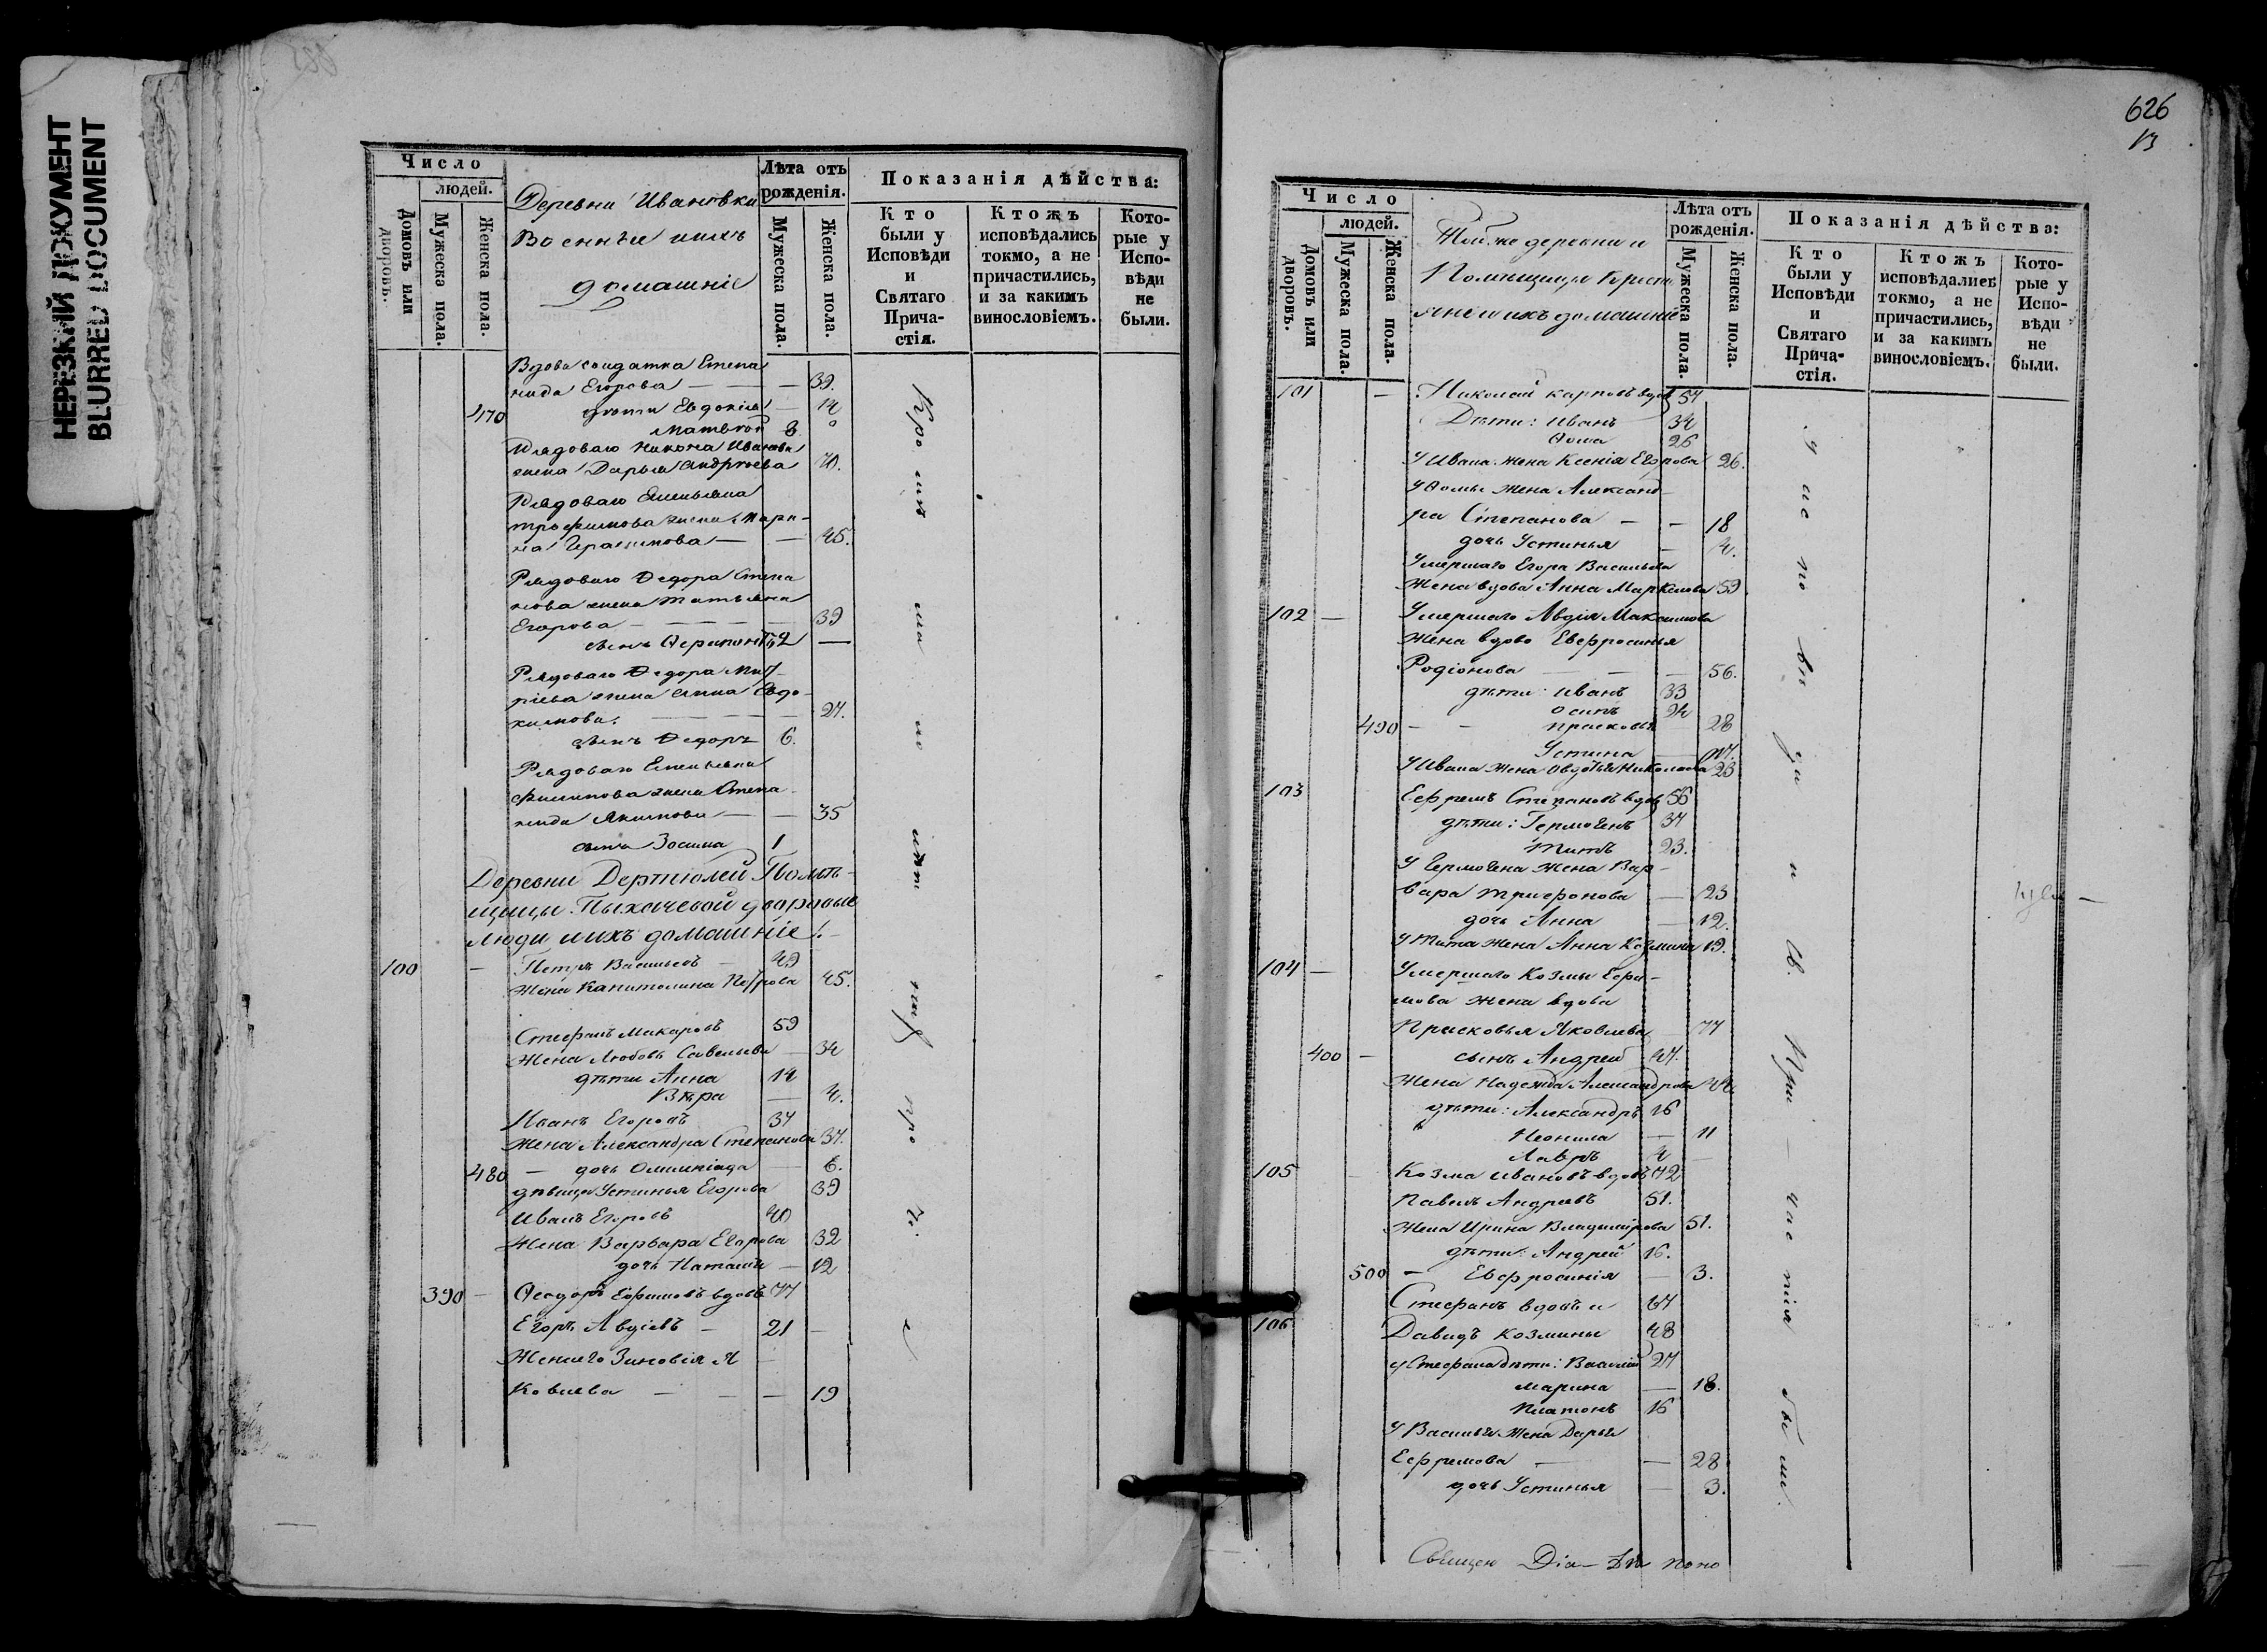 НЕРЕЗКИЙ ДОКУМЕНТ
BLURRED DOCUMENT
Число
людей.
Домовъ или дворовъ.
Мужеска пола.
Женска пола.
Деревни Ивановки
Военные ихъ
домашніе
Лѣта отъ рожденія.
Мужеска пола.
Женска пола.
Показанія дѣйства:
Кто были у Исповѣди и Святаго Прича-стія.
Ктожъ исповѣдались токмо, а не причастились, и за какимъ винословіемъ.
Кото-рые у Испо-вѣди не были.
Вдова солдатка Степа
нида Егорова — — 39.
470 Евдокія — 14
Рядоваго Никона Иванова
жена Дарья Андреева 40.
Рядоваго Емельяна
Трофимова жена Мари-
на Герасимова — — 45.
Рядоваго Федора Степа
нова жена Татьяна
Егорова — — — — 39
сынъ Ферапонтъ 12 —
Рядоваго Федора
жена Анна Евдо-
кимова. — — — 27.
сынъ Федоръ 6.
Рядоваго Емельяна
Филипова жена Степа
нида Якимова — — 35
сынъ Зосима 1
Деревни Дертюлей Помѣ-
щицы Пыхачевой дворовые
люди и ихъ домашніе:
100 — Петръ Васильевъ — 49
Жена Капитолина Петрова 45.
Стефанъ Макаровъ 59
Жена Любовь Савельева — 34
дѣти Анна 14
Вѣра — 4.
Иванъ Егоровъ 37
Жена Александра Степанова 37.
480 — дочь Олимпіада — 6.
дѣвица Устинья Егорова 39
Иванъ Егоровъ 40
Жена Варвара Егорова 32
дочь Наталія — 12
390 — Феодоръ Ефимовъ вдовъ 77
Егоръ Авдіевъ — 21 —
Жена его Зиновія Я
ковлева — — — 19
626
Число
людей.
Домовъ или дворовъ.
Мужеска пола.
Женска пола.
Той же деревни и
Помѣщицы Кресть
яне и ихъ домашніе
Лѣта отъ рожденія.
Мужеска пола.
Женска пола.
Показанія дѣйства:
Кто были у Исповѣди и Святаго Прича-стія.
Ктожъ исповѣдались токмо, а не причастились, и за какимъ винословіемъ.
Кото-рые у Испо-вѣди не были.
101 — Николай Карповъ вдов 57
Дѣти: Иванъ 34
Фома 26
У Ивана жена Ксенія Егорова 26.
У Фомы жена Александ-
ра Степанова — — 18
дочь Устинья — 4.
Умершаго Егора Васильева
Жена вдова Анна Маркелова 59
102 — Умершаго Авдія Максимова
Жена вдова Евфросинья
Родіонова — — — 56.
дѣти: Иванъ 33
Осипъ 24
490 — — Прасковья 28
Устина —
У Ивана жена Овдотья Николаева 23
103 Ефремъ Степановъ вдов 56
дѣти: Гермогенъ 37
Титъ 23.
У Гермогена жена Вар-
вара Трифонова — 23
дочь Анна — 12.
У Тита жена Анна Козмина 19.
104 — Умершаго Козмы Ефи-
мова жена вдова
Прасковья Яковлева — 77
400 — сынъ Андрей 47.
Жена Надежда Александрова 44.
дѣти: Александръ 16
Неонила — 11
Лавръ 4 —
105 — Козма Ивановъ вдовъ 72
Павелъ Андреевъ 51.
Жена Ирина Владимірова 51.
дѣти: Андрей 16.
500 — Евфросинія — 3.
Стефанъ вдовъ и 67
106 Давидъ Козмины 48
у Стефана дѣти: Василій 27
Марина — 18.
Платонъ 16
У Василья жена Дарья
Ефремова — — 28
дочь Устинья — 3.
у исповѣди и Св. При — частія были.